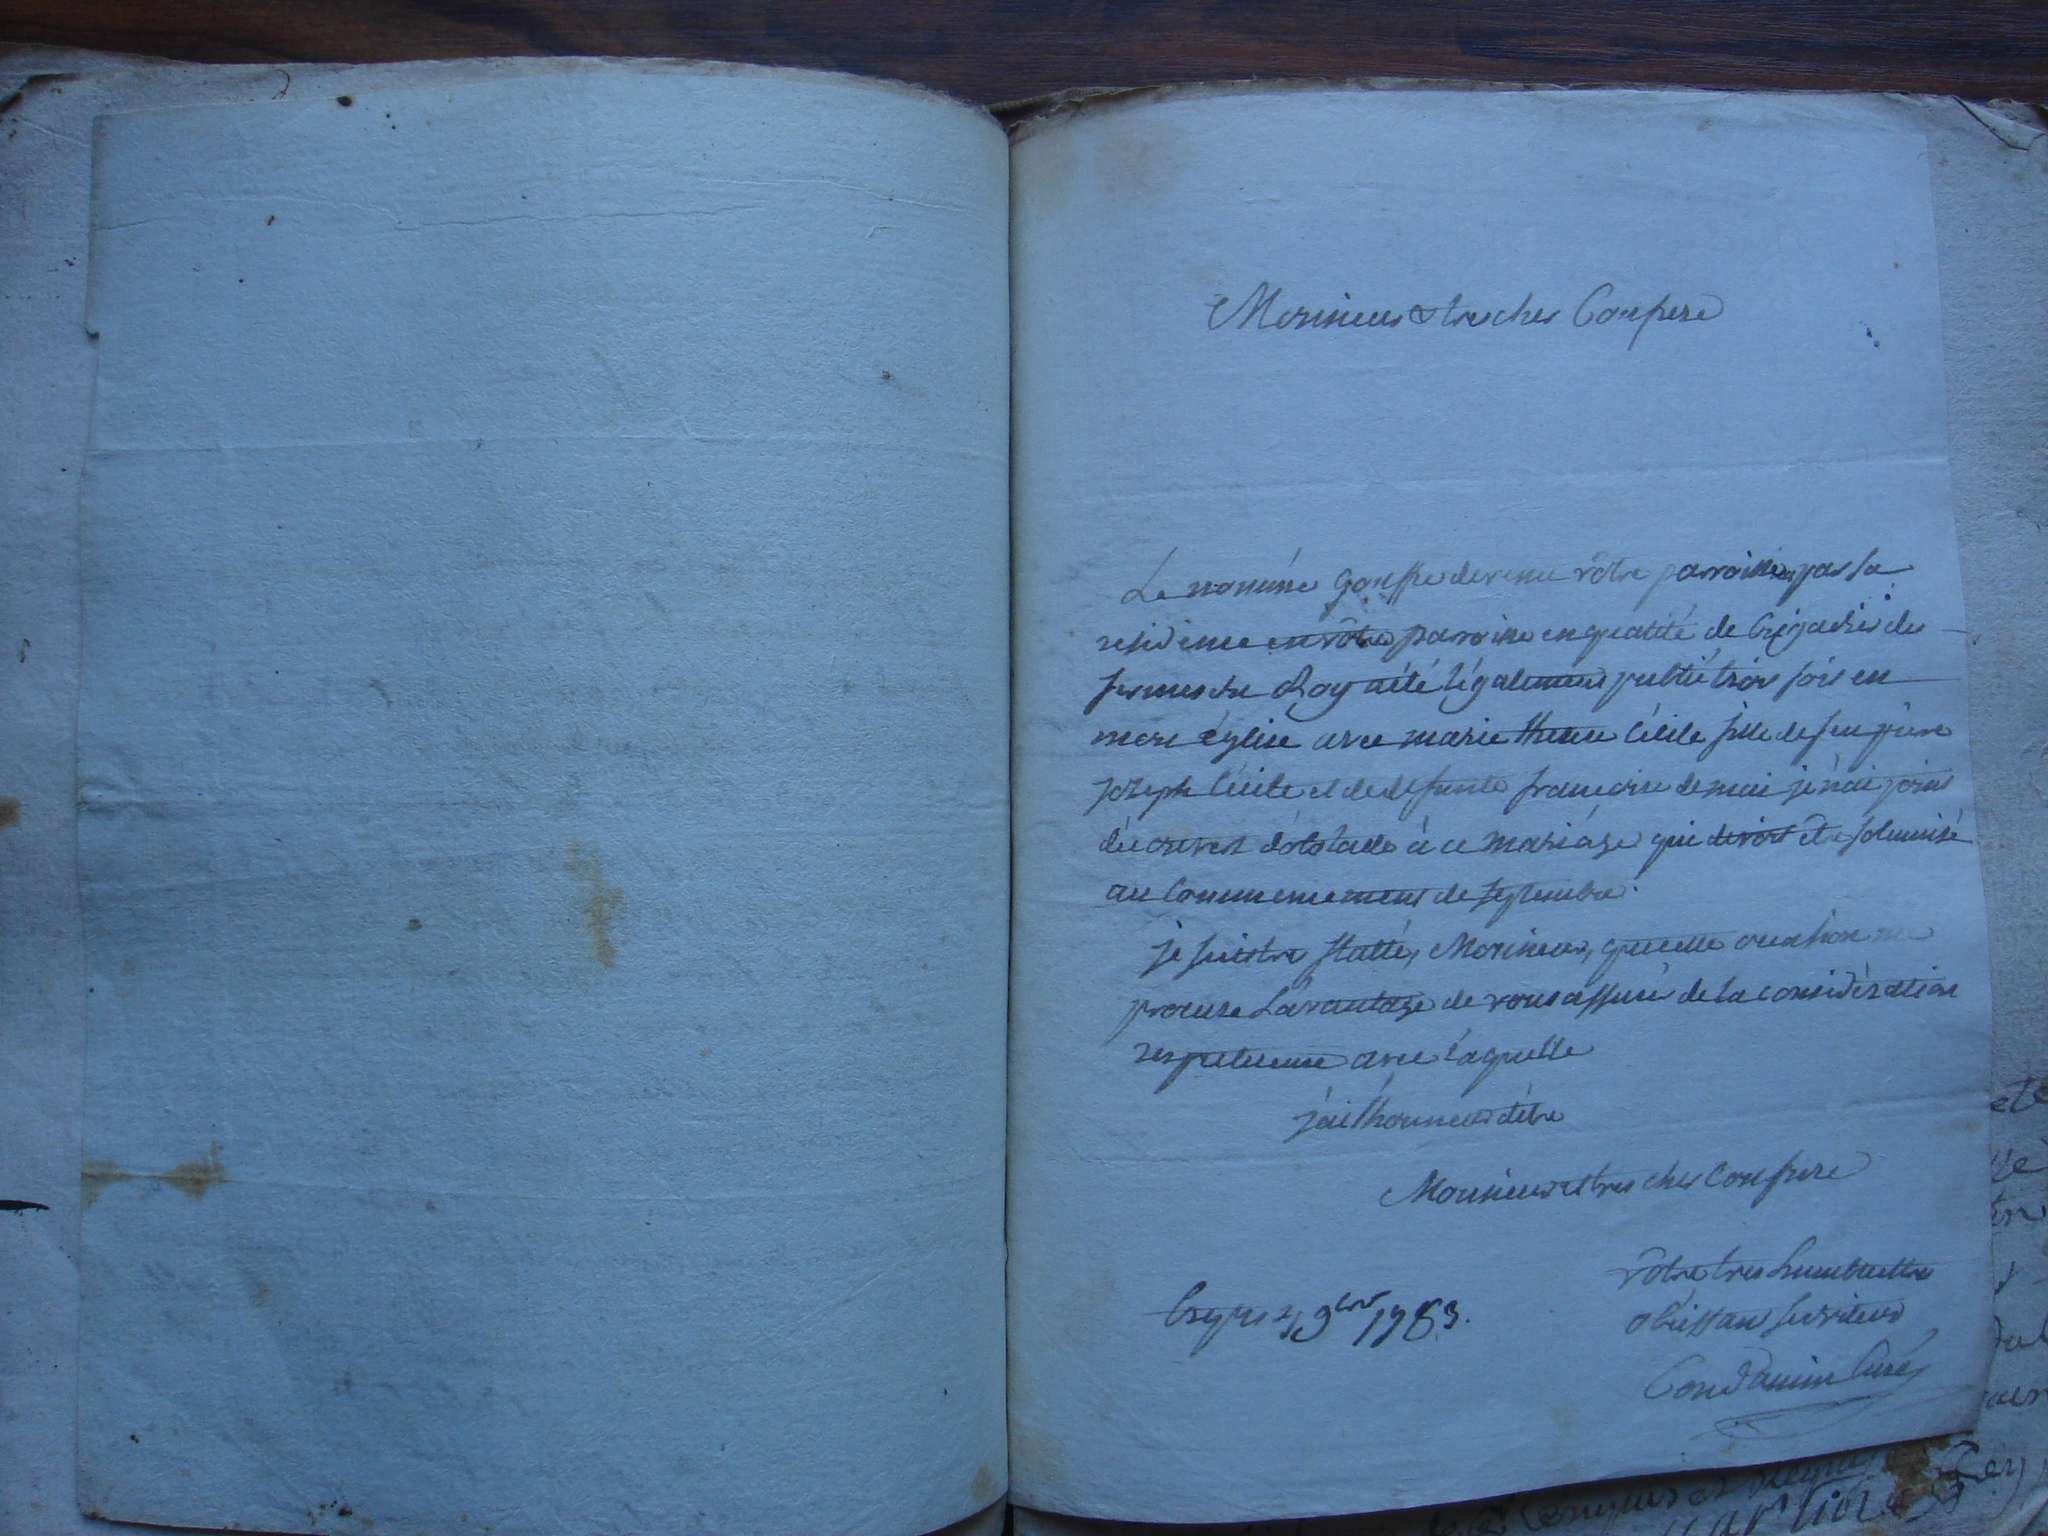 Monsieur & tres cher Confrere
Le nommé Gouffre devenu vôtre parroissien par sa
residence en vôtre parroisse en qualité de brigadier des
fermes du Roy a été légalement publié trois fois en
mon église avec marie Cécile fille de feu pierre
Joseph Cécile et de defunte françoise demai je n'ai point
découvert d'obstacle à ce mariage qui devoit etre solemnisé
au Commencement de septembre.
je suis tres flatté, Monsieur, que cette occasion me
procure L'avantage de vous assurer de la considération
respectueuse avec laquelle
j'ai l'honneur d'être
Monsieur et tres cher Confrere
vôtre tres humble et tres
obéissant serviteur
9bre 1783.
Condamin Curé